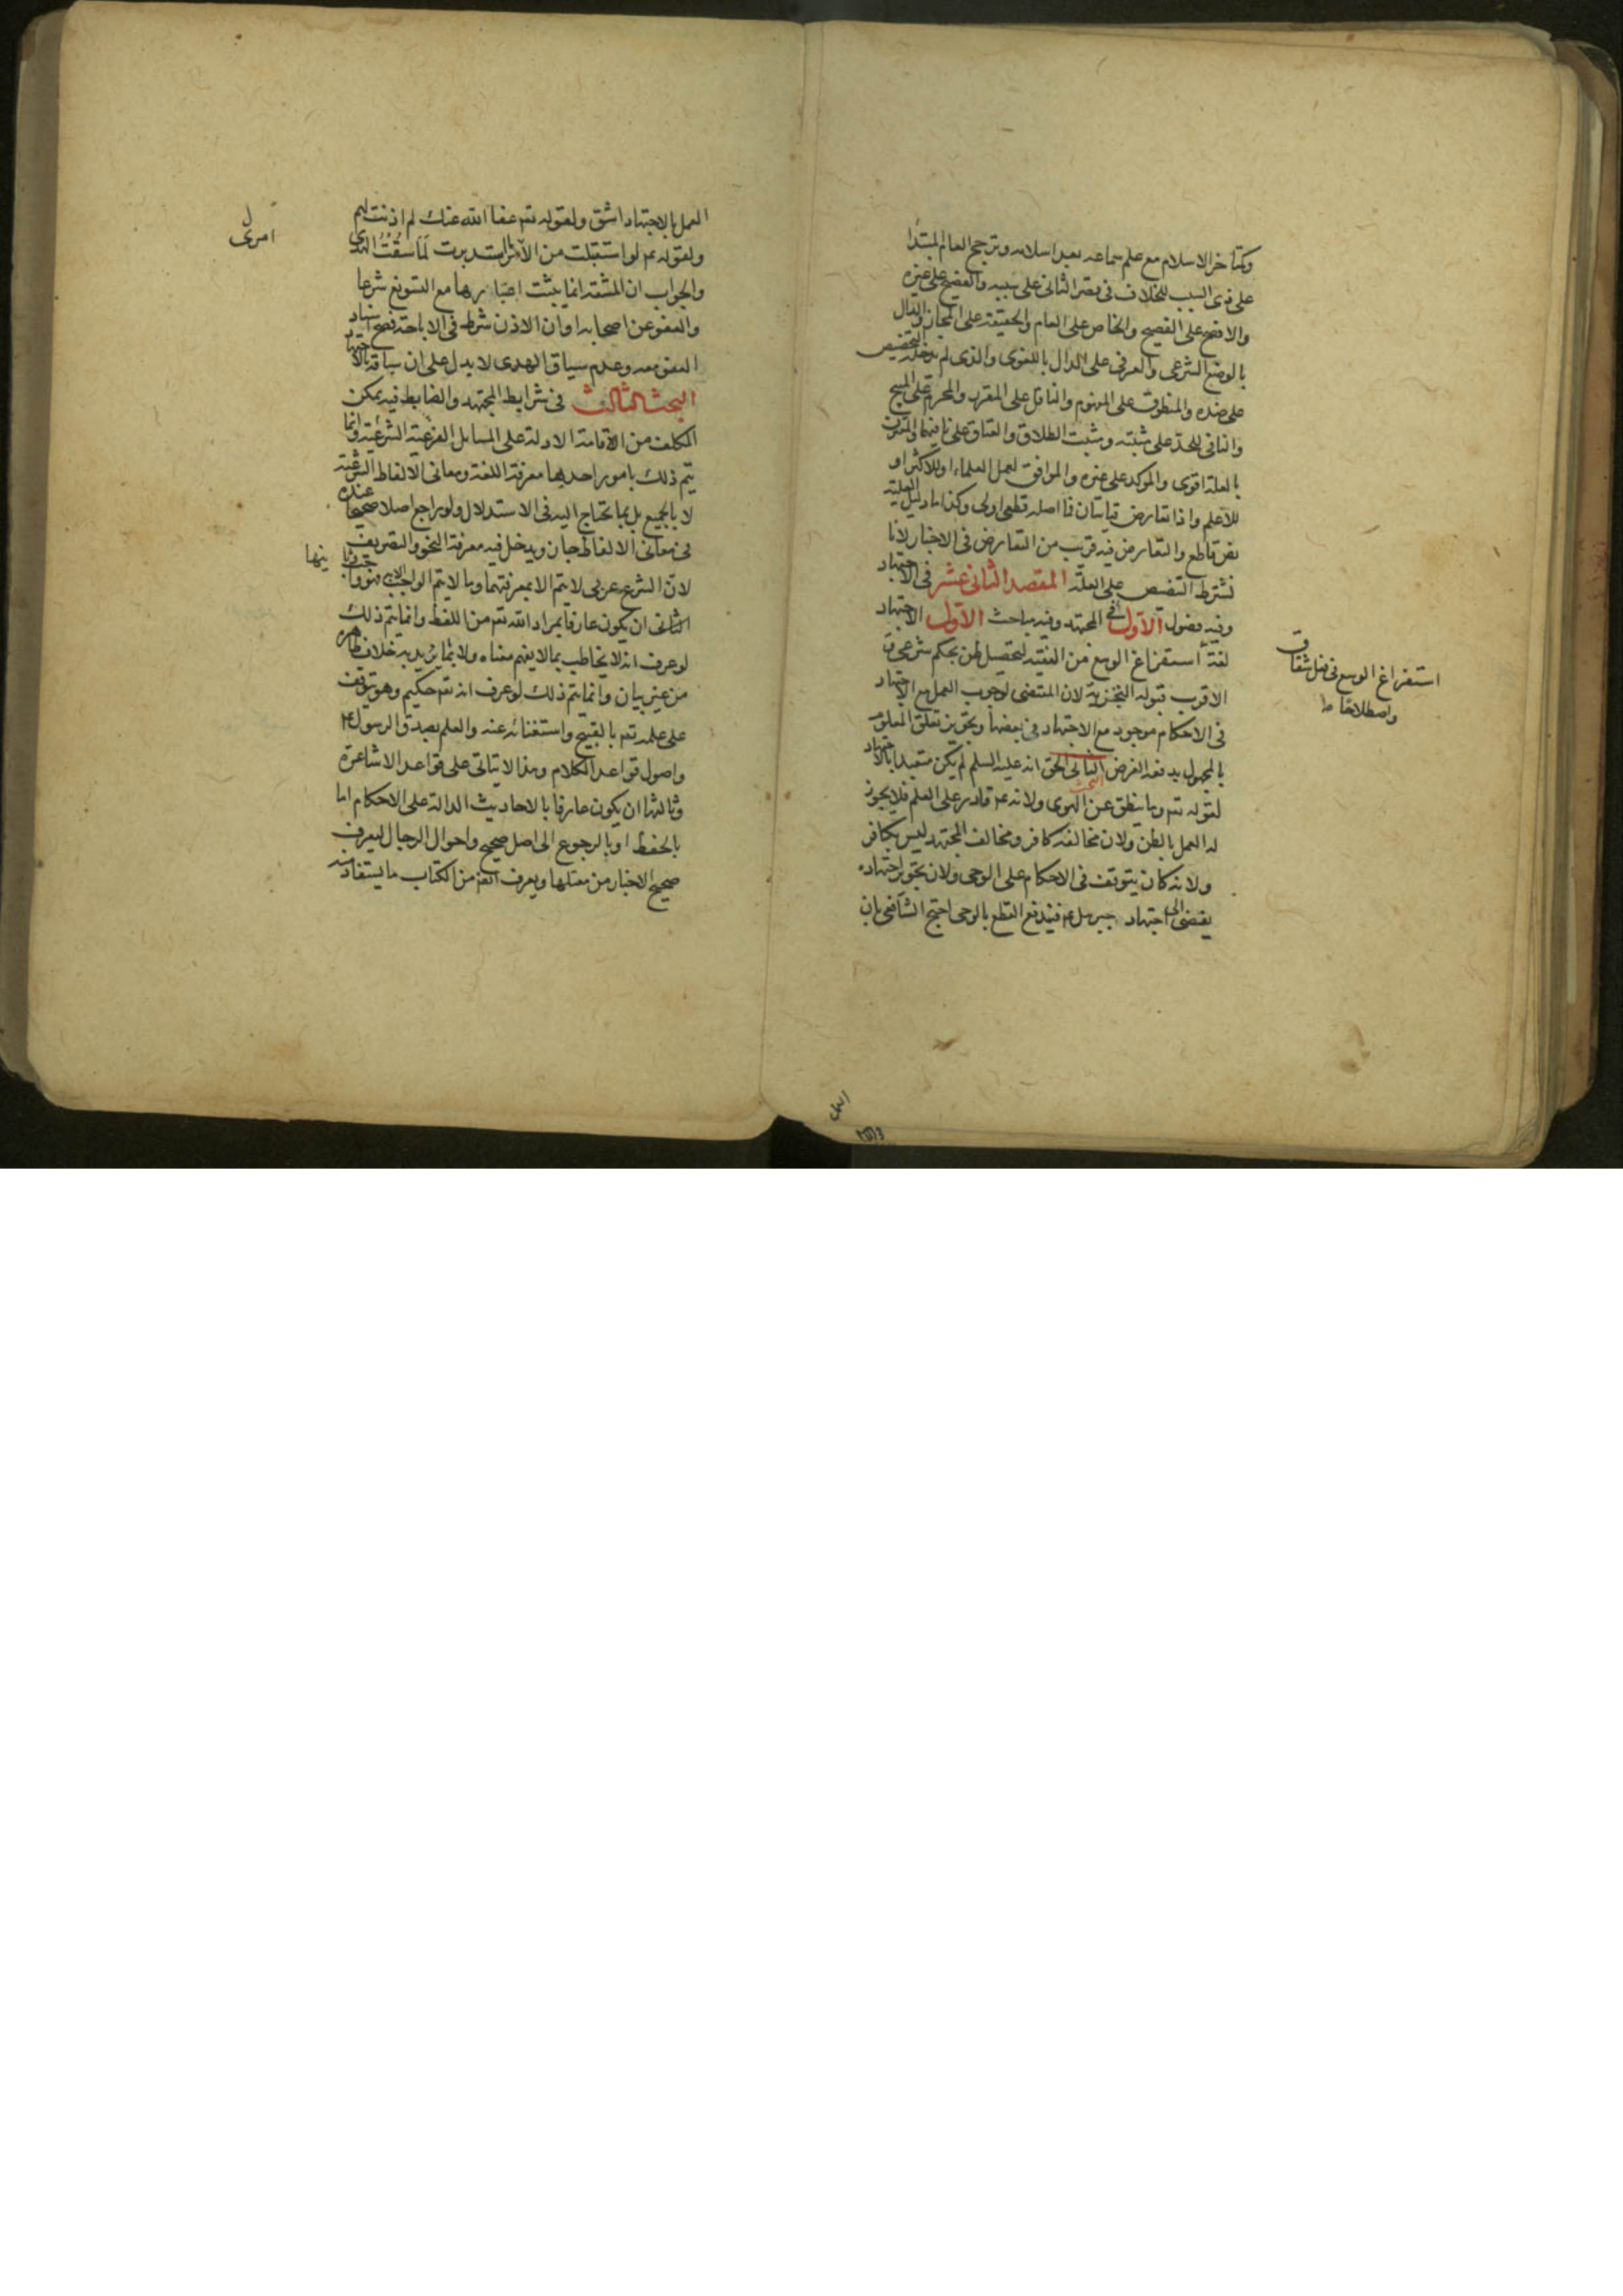 وكتاخر الاسلام مع علم سماعه بعد اسلامه وترجح العام المبتدا
على ذى السبب للخلاف فى قصر الثانى على سببه والفصيح على غيره
والافصح على الفصيح والخاص على العام والحقيقة على المجاز والدال
بالوضع الشرعى والعرفى على الدال باللغوى والذى لم يدخله التخصيص
على ضده والمنطوق على المفهوم والناقل على المقرر والمحرم على المبيح
والنافى للحد على مثبته ومثبت الطلاق والعتاق على نافيهما والمقترن
بالعلة اقوى والموكد على غيره والموافق لعمل العلماء او للاكثر او
للاعلم واذا تعارض قياسان فما اصله قطعى اولى وكذا ما دليل العلية
نص قاطع والتعارض فيه قريب من التعارض فى الاخبار لانا
نشترط التنصيص على العلة المقصد الثانى عشر فى الاجتهاد
وفيه فصول الاول فى المجتهد وفيه مباحث الاول الاجتهاد
لغة استفراغ الوسع من الفقيه لتحصيل ظن بحكم شرعى و
الاقرب قبوله التجزية لان المقتضى لوجوب العمل مع الاجتهاد
فى الاحكام موجود مع الاجتهاد فى بعضها وتجويز تعلق المعلوم
بالمجهول يدفعه الفرض البحث الثانى الحق انه عليه السلم لم يكن متعبدا بالاجتهاد
لقوله تع وما ينطق عن الهوى ولانه ع قادر على العلم فلا يجوز
له العمل بالظن ولان مخالفه كافر ومخالف المجتهد ليس بكافر
ولانه كان يتوقف فى الاحكام على الوحى ولان تجويز اجتهاده
يفضى الى اجتهاد جبرئل ع فيندفع القطع بالوحى احتج الشافعى بان
استفراغ الوسع فى فعل شاق
واصطلاحا
العمل
العمل بالاجتهاد اشق ولقوله تع عفا الله عنك لم اذنت لهم
ولقوله ع لو استقبلت من الامر ما استدبرت لما سقت الهدى
امرى
والجواب ان المشقة انما يثبت اعتبارها مع التسويغ شرعا
والعفو عن اصحابه او ان الاذن شرط فى الاباحة فصح
العفو معه وعدم سياق الهدى لا يدل على ان سياقه بالاجتهاد
البحث الثالث فى شرايط المجتهد والضابط فيه تمكن
المكلف من اقامة الادلة على المسايل الفرعية الشرعية وانما
يتم ذلك بامور احدها معرفة اللغة ومعانى الالفاظ الشرعية
لا بالجميع بل بما يحتاج اليه فى الاستدلال ولو راجع اصلا صحيحا عنده
فى معانى الالفاظ جاز ويدخل فيه معرفة النحو والتصريف
لان الشرع عربى لا يتم الا بمعرفتهما وما لا يتم الواجب الا به فهو واجب
الثانى ان يكون عارفا بمراد الله تع من اللفظ وانما يتم ذلك
لو عرف انه لا يخاطب بما لا يفهم معناه ولا بما يريد به خلاف ظاهره
من غير بيان وانما يتم ذلك لو عرف انه تع حكيم وهو يتوقف
على علمه تع بالقبيح واستغنائه عنه والعلم بصدق الرسول ع
واصول قواعد الكلام وهذا لا يتاتى على قواعد الاشاعرة
وثالثها ان يكون عارفا بالاحاديث الدالة على الاحكام اما
بالحفظ او بالرجوع الى اصل صحيح واحوال الرجال ليعرف
صحيح الاخبار من معتلها ويعرف ايضا من الكتاب ما يستفاد منه